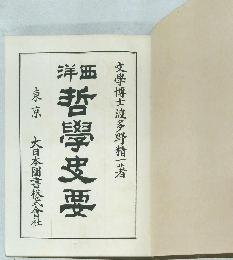 文學博士波多野精一著
西洋
哲學史要
東京　大日本圖書株式會社